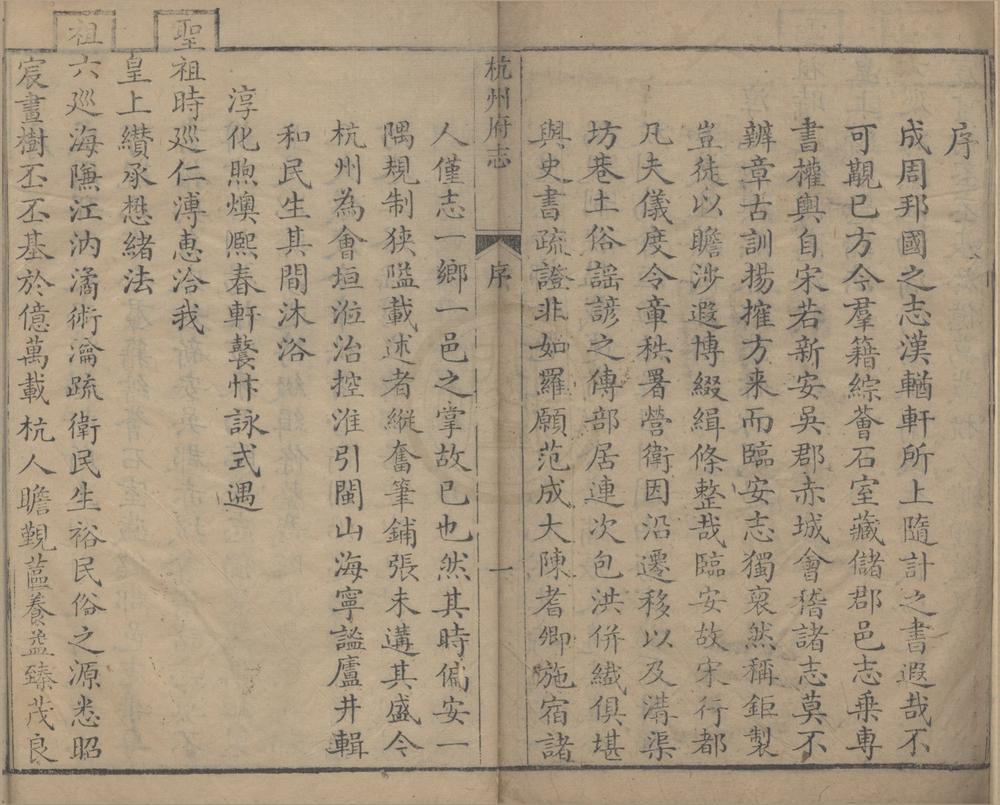 序
成周邦國之志漢輶軒所上隨計之書遐哉不
可覯已方今羣籍綜薈石室藏儲郡邑志乗專
書權輿自宋若新安吳郡赤城會稽諸志莫不
辨章古訓揚搉方来而臨安志獨裒然稱鉅製
豈徒以瞻涉遐博綴緝條整哉臨安故宋行都
凡夫儀度令章秩署營衛因沿遷移以及溝渠
坊巷土俗謡諺之傳部居連次包洪併纎俱堪
與史書疏證非如羅願范成大陳耆卿施宿諸
杭州府志
序
一
人僅志一鄉一邑之掌故已也然其時偏安一
隅規制狹隘載述者縱奮筆鋪張未遘其盛今
杭州為會垣涖治控淮引閩山海寧謐廬井輯
和民生其間沐浴
淳化煦燠熈春軒鼚忭詠式遇
聖祖時廵仁溥惠洽我
皇上纘承懋緒法
祖六廵海隒江汭潏術瀹疏衛民生裕民俗之源悉昭
宸畫樹丕丕基於億萬載杭人瞻覲藴養益臻茂良